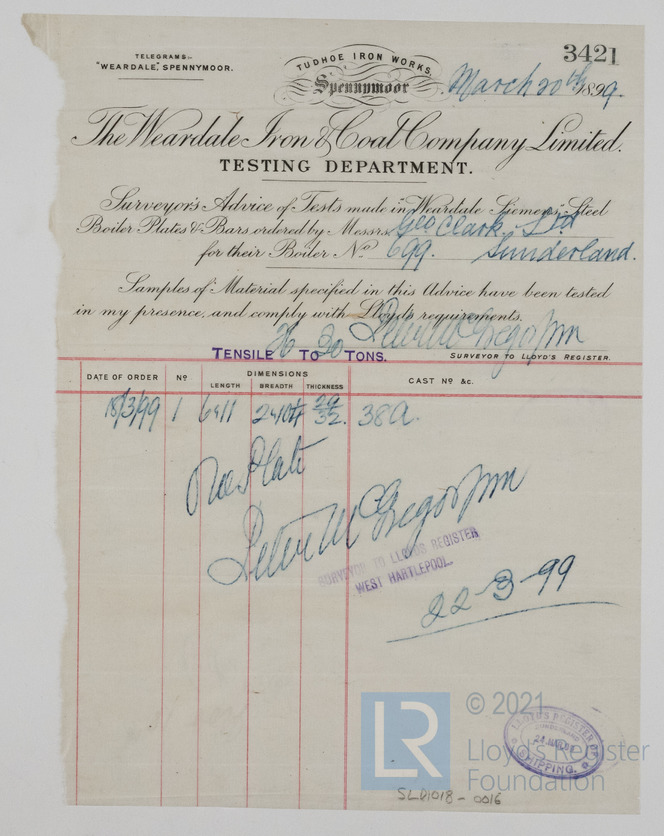 TELEGRAMS:-
"WEARDALE," SPENNYMOOR.
TUDHOE IRON WORKS,
Spennymoor
3421
March 20th 1899.
The Weardale Iron & Coal Company Limited.
TESTING DEPARTMENT.
Surveyor's Advice of Tests made in "Weardale Siemens" Steel
Boiler Plates & Bars ordered by Messrs. Geo Clark Ltd
for their Boiler No 699. Sunderland.
Samples of Material specified in this Advice have been tested
in my presence, and comply with Lloyd's requirements.
Peter McGregor Jnr
TENSILE 26 TO 30 TONS.
SURVEYOR TO LLOYD'S REGISTER.
DATE OF ORDER No DIMENSIONS CAST No &c.
LENGTH BREADTH THICKNESS
18/3/99 1 29/32. 38A.
One Plate
Peter McGregor Jnr
SURVEYOR TO LLOYD'S REGISTER
WEST HARTLEPOOL.
22-3-99
LR © 2021
Lloyd's Register
Foundation
LLOYD'S REGISTER OF
SUNDERLAND
24 MAR
SHIPPING.
SLD1018-0016